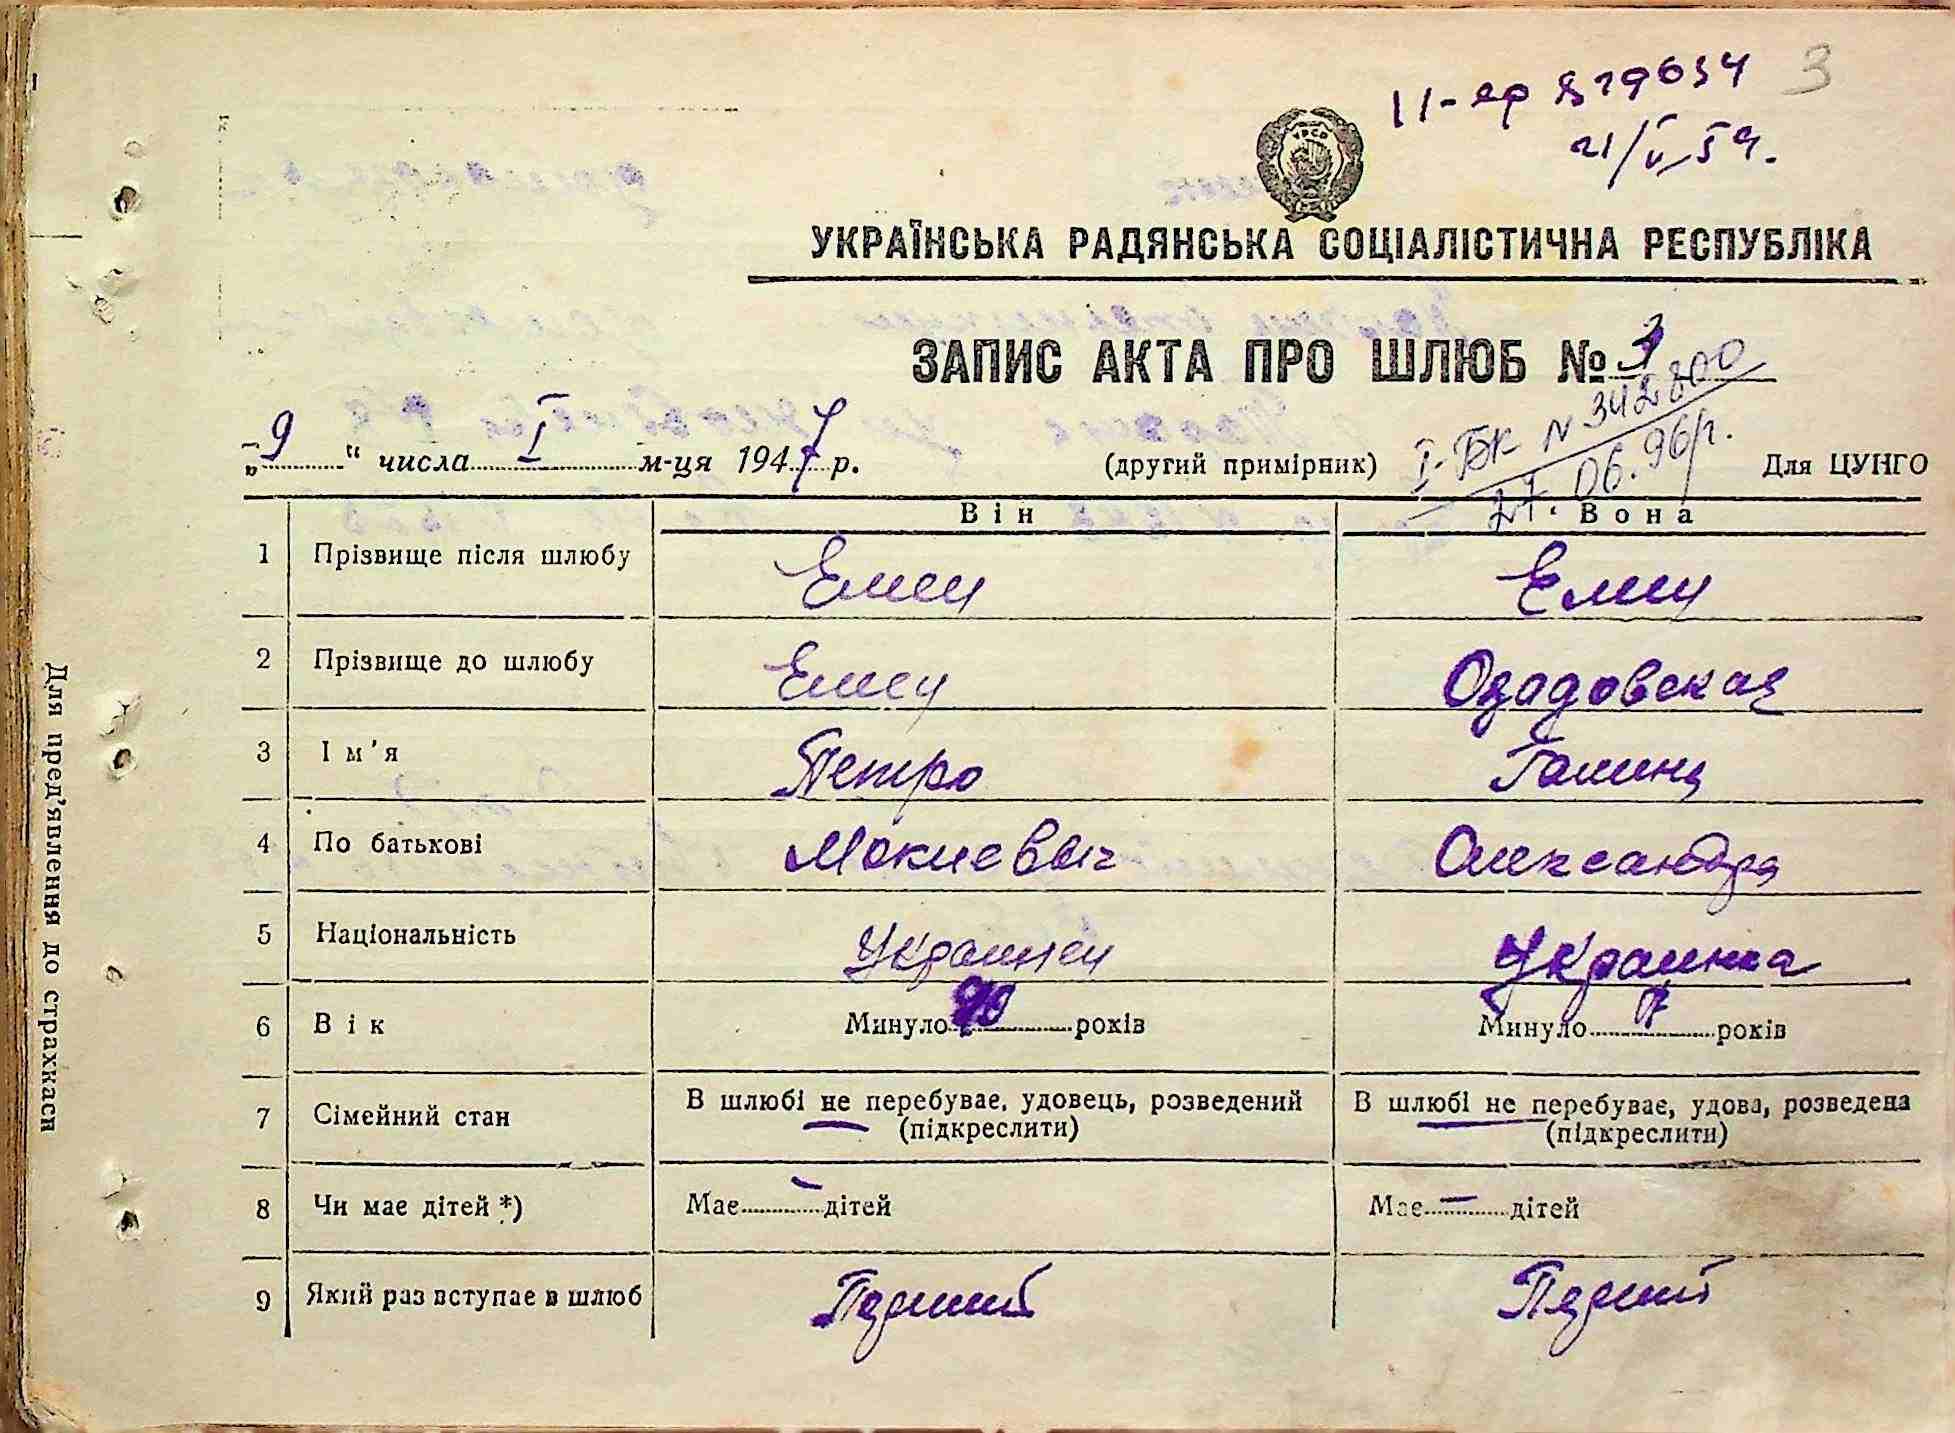 3
21/V 59.
УКРАЇНСЬКА РАДЯНСЬКА СОЦІАЛІСТИЧНА РЕСПУБЛІКА
ЗАПИС АКТА ПРО ШЛЮБ № 3
I-БК N 342800
27.06.96р.
„9“ числа I м-ця 1947 р. (другий примірник) Для ЦУНГО
Він Вона
1 Прізвище після шлюбу Емец Емец
2 Прізвище до шлюбу Емец
3 Ім'я Петро Галина
4 По батькові Мокиевыч Олександра
5 Національність Украинец Украинка
6 Вік Минуло років Минуло років
7 Сімейний стан В шлюбі не перебуває, удовець, розведений (підкреслити) В шлюбі не перебуває, удова, розведена (підкреслити)
8 Чи має дітей *) Має – дітей Має – дітей
9 Який раз вступає в шлюб Перший Перший
Для пред'явлення до страхкаси